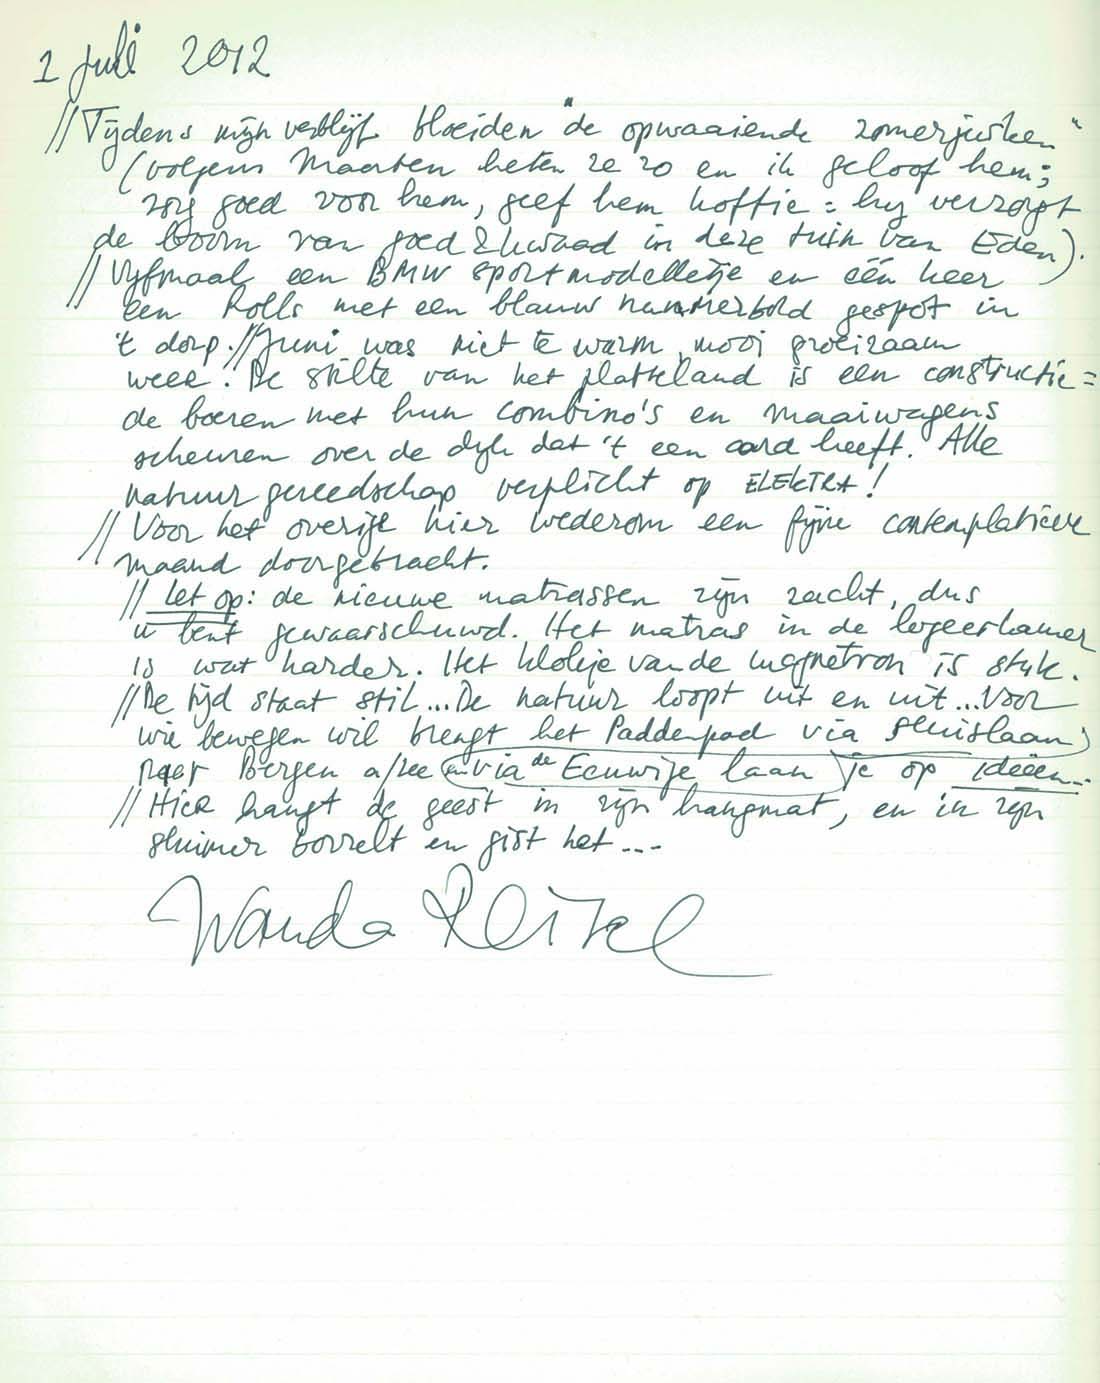 1 juli 2012
// Tijdens mijn verblijf bloeiden "de opwaaiende zomerjurken"
(volgens Maarten heten ze zo en ik geloof hem;
zorg goed voor hem, geef hem koffie = hij verzorgt
de boom van goed & kwaad in deze tuin van Eden).
// Vijfmaal een BMW sportmodelletje en één keer
een Rolls met een blauw nummerbord gespot in
't dorp. // Juni was niet te warm, mooi groeizaam
weer. De stilte van het platteland is een constructie =
de boeren met hun combino's en maaiwagens
scheuren over de dijk dat 't een aard heeft. Alle
natuurgereedschap verplicht op ELEKTRA!
// Voor het overige hier wederom een fijne contemplatieve
maand doorgebracht.
// Let op: de nieuwe matrassen zijn zacht, dus
u bent gewaarschuwd. Het matras in de logeerkamer
is wat harder. Het klokje van de magnetron is stuk.
// De tijd staat stil... De natuur loopt uit en uit... Voor
wie bewegen wil brengt het Paddenpad via Sluislaan
naar Bergen a/zee (en via de Eeuwige laan) je op ideeën..
// Hier hangt de geest in zijn hangmat, en in zijn
sluimer borrelt en gist het ...
Wanda Reisel